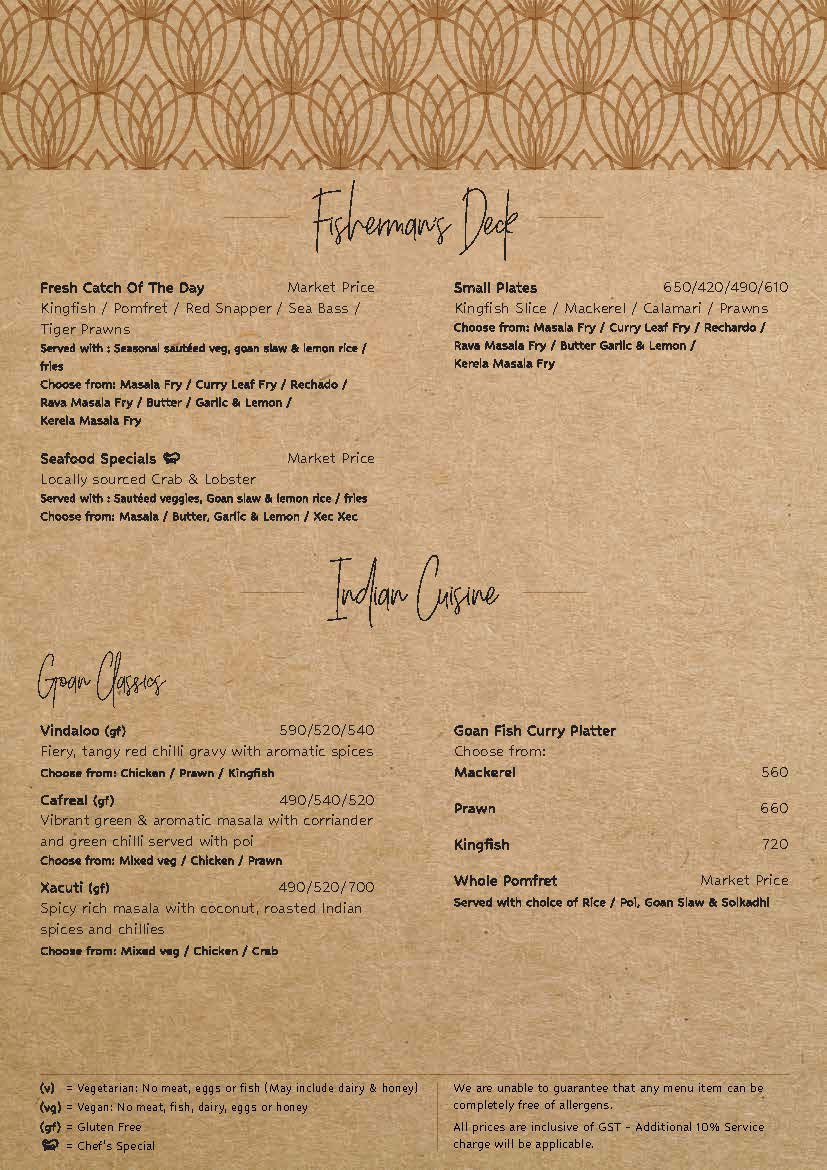 Fisherman's Deck
Fresh Catch Of The Day Market Price
Kingfish / Pomfret / Red Snapper / Sea Bass /
Tiger Prawns
Served with : Seasonal sautéed veg, goan slaw & lemon rice /
fries
Choose from: Masala Fry / Curry Leaf Fry / Rechado /
Rava Masala Fry / Butter / Garlic & Lemon /
Kerela Masala Fry
Seafood Specials Market Price
Locally sourced Crab & Lobster
Served with : Sautéed veggies, Goan slaw & lemon rice / fries
Choose from: Masala / Butter, Garlic & Lemon / Xec Xec
Small Plates 650/420/490/610
Kingfish Slice / Mackerel / Calamari / Prawns
Choose from: Masala Fry / Curry Leaf Fry / Rechardo /
Rava Masala Fry / Butter Garlic & Lemon /
Kerela Masala Fry
Indian Cuisine
Goan Classics
Vindaloo (gf) 590/520/540
Fiery, tangy red chilli gravy with aromatic spices
Choose from: Chicken / Prawn / Kingfish
Cafreal (gf) 490/540/520
Vibrant green & aromatic masala with corriander
and green chilli served with poi
Choose from: Mixed veg / Chicken / Prawn
Xacuti (gf) 490/520/700
Spicy rich masala with coconut, roasted Indian
spices and chillies
Choose from: Mixed veg / Chicken / Crab
Goan Fish Curry Platter
Choose from:
Mackerel 560
Prawn 660
Kingfish 720
Whole Pomfret Market Price
Served with choice of Rice / Poi, Goan Slaw & Solkadhi
(v) = Vegetarian: No meat, eggs or fish (May include dairy & honey)
(vg) = Vegan: No meat, fish, dairy, eggs or honey
(gf) = Gluten Free
= Chef's Special
We are unable to guarantee that any menu item can be
completely free of allergens.
All prices are inclusive of GST - Additional 10% Service
charge will be applicable.